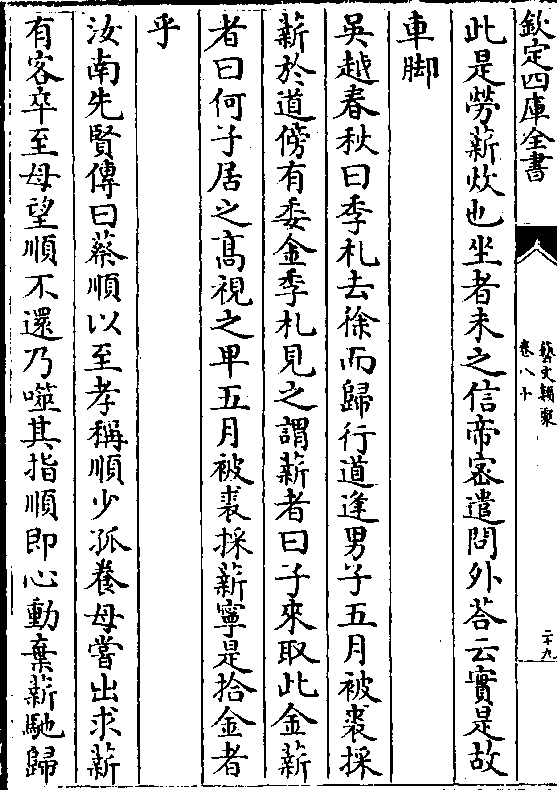 欽定四庫全書
藝文類聚
卷八十
二十九
此是勞薪炊也坐者未之信帝密遣問外荅云實是故
車脚
吳越春秋曰季札去徐而歸行道逢男子五月被裘採
薪於道傍有委金季札見之謂薪者曰子來取此金薪
者曰何子居之髙視之甲五月被裘採薪寧是拾金者
乎
汝南先賢傳曰蔡順以至孝稱順少孤養母嘗出求薪
有客卒至母望順不還乃噬其指順即心動棄薪馳歸